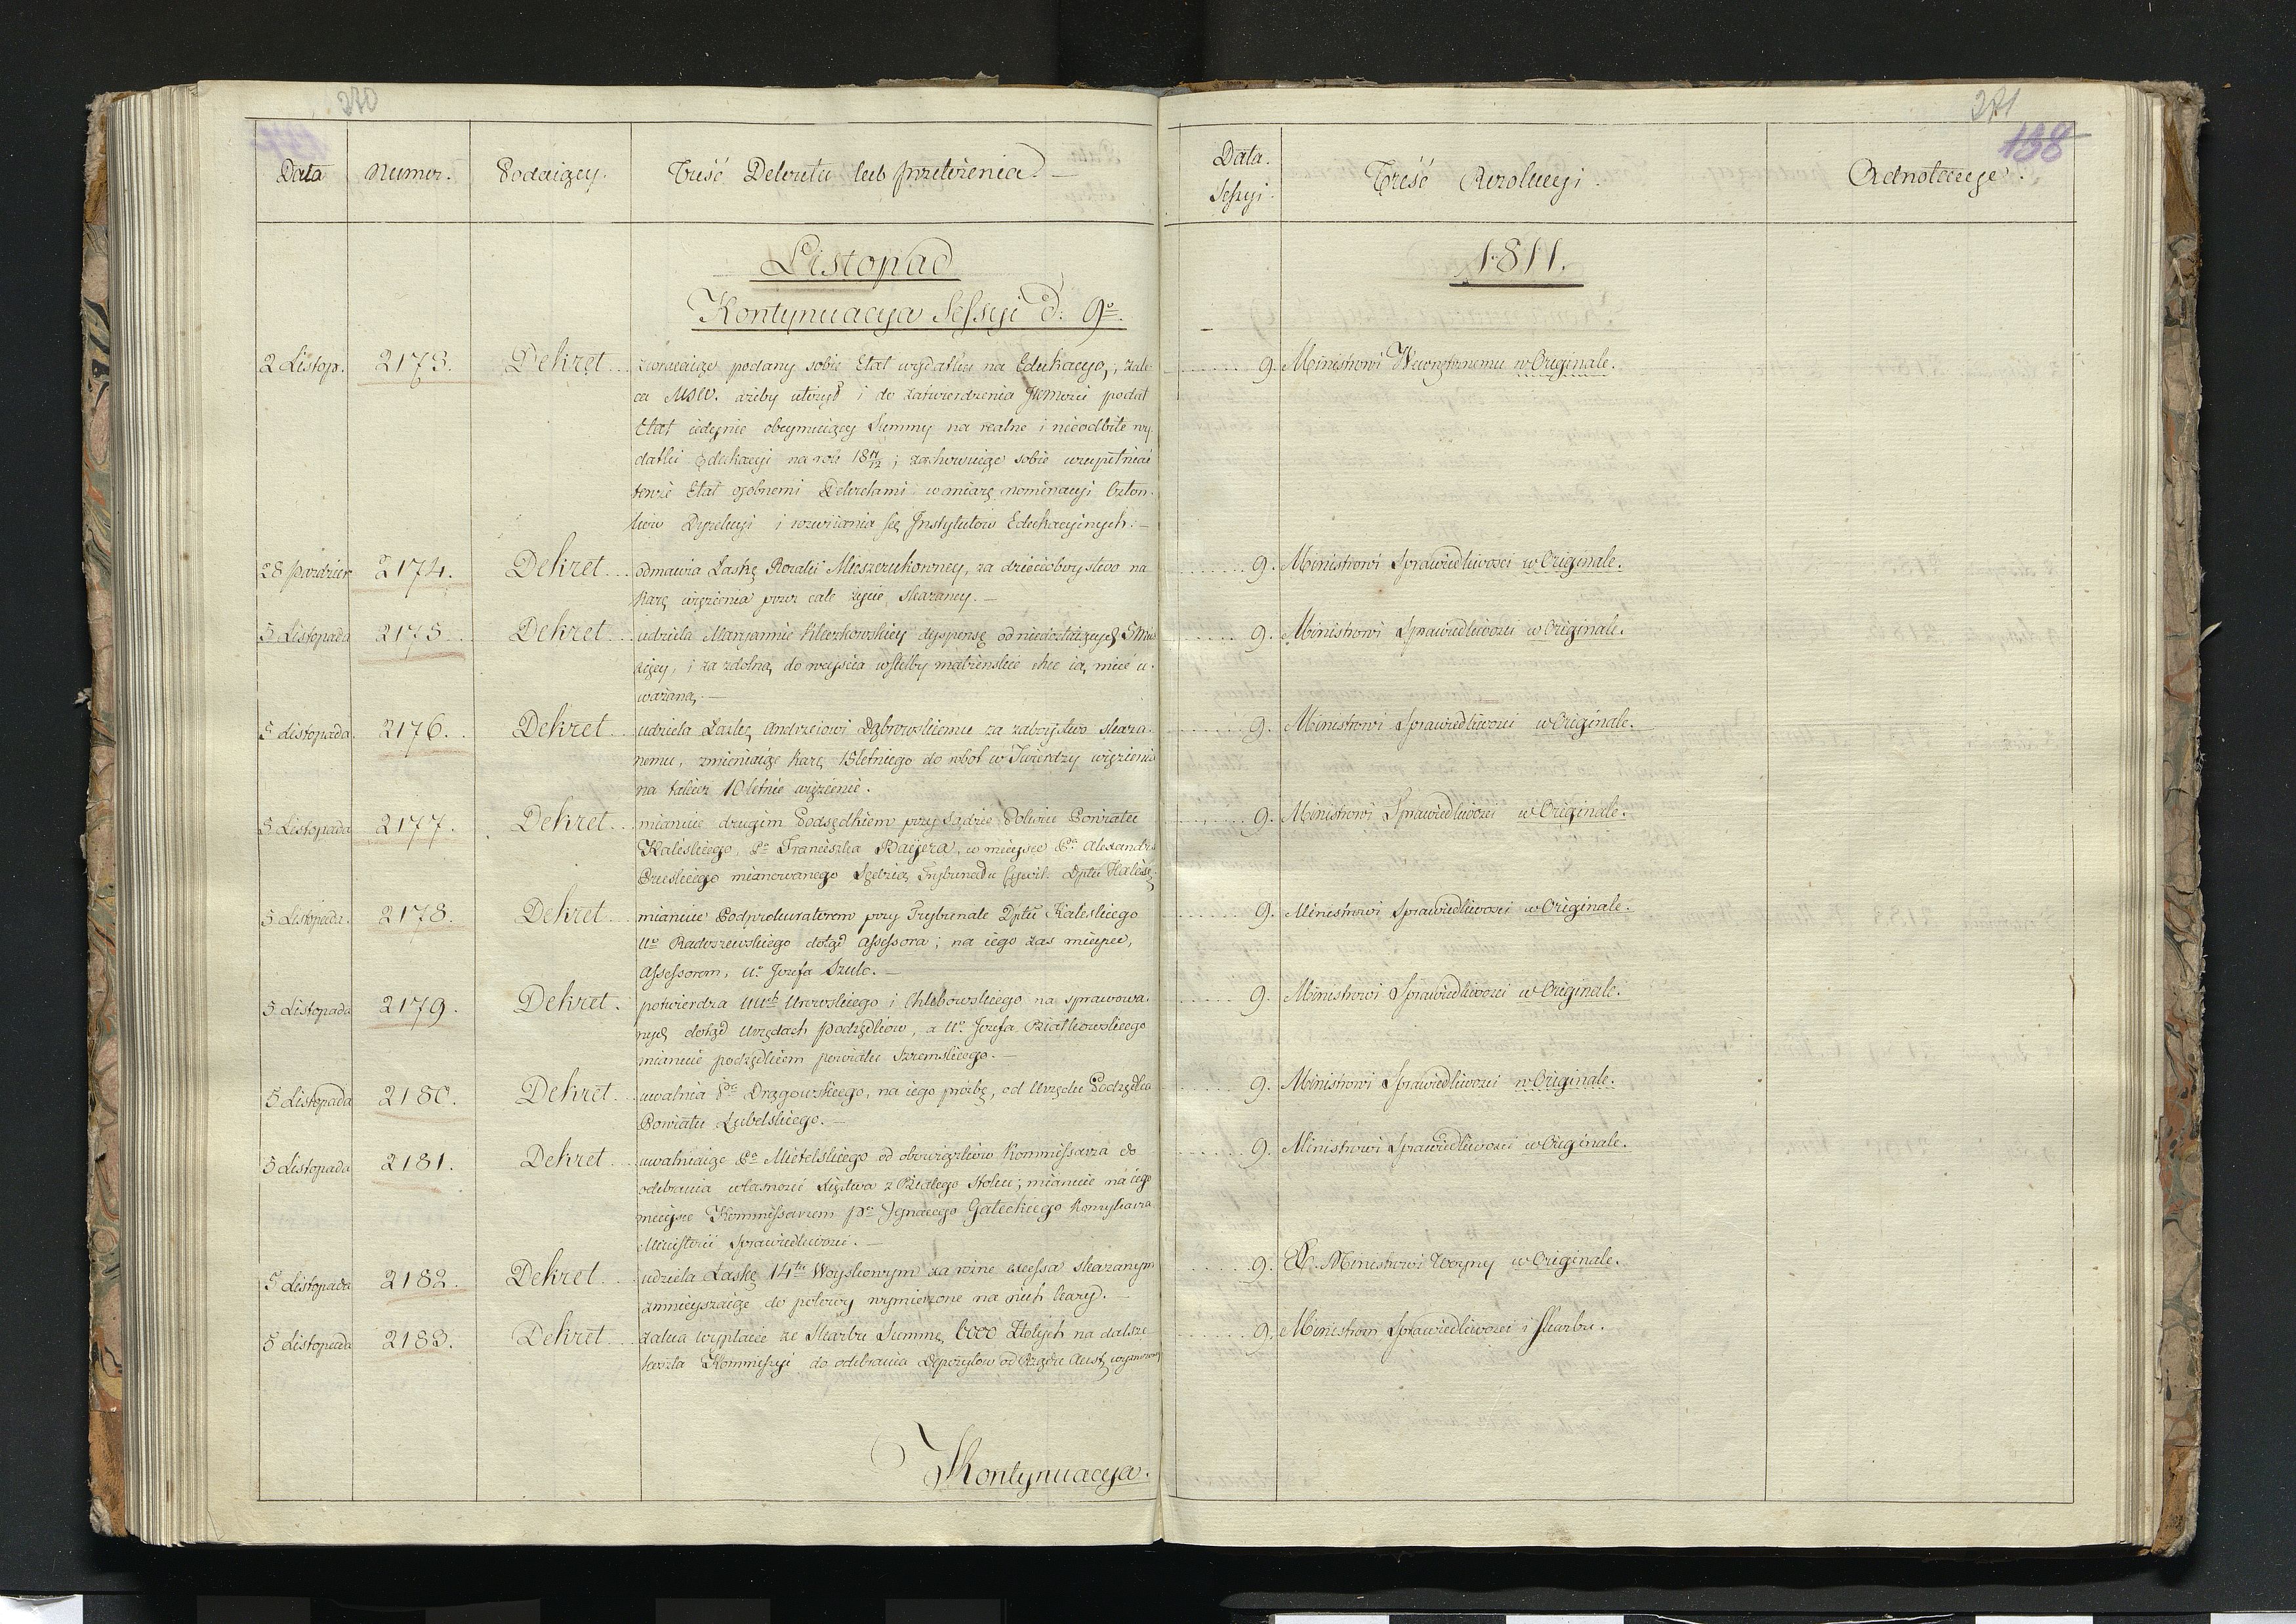 270
Data
Numer.
Podaiący.
Treść Dekretu lub przełożenia.
Listopad
Kontynuacya Sessyi d: 9º
2 Listop. 2173. Dekret... zwracaiąc podany sobie Etat wydatków na Edukacyą; zale-
ca MSW. ażeby ułożył i do zatwierdzenia JKMości podał
Etat iedynie obeymuiący Summy na realne i nieodbite wy-
datki Edukacyi na rok 18 11/12; zachowuiąc sobie uzupełniać
tenże Etat osobnemi Dekretami w miarę nominacyi Człon-
ków Dyrekcyi i rozwiiania się Instytutów Edukacyinych.—
28 Pazdzier 2174. Dekret... odmawia Łaskę Rozalii Mieszczukowney, za dzieciobóystwo na
karę więzienia przez całe życie, skazaney.—
5 Listopada 2175. Dekret... udziela Maryannie Kleczkowskiey dyspensę od niedostaiących 5 Mie-
sięcy, i za zdolną do weyścia w śluby małżeńskie chce ią mieć u-
ważaną.—
5 Listopada. 2176. Dekret... udziela Łaskę Andrzeiowi Dąbrowskiemu za zabóystwo skaza-
nemu, zmieniaiąc karę 15letniego do robot w Twierdzy więzienia
na takież 10letnie więzienie.
5 Listopada 2177. Dekret... mianuie drugim Podsędkiem przy Sądzie Pokoiu Powiatu
Kaliskiego, Pª Franciszka Baiera, w mieysce Pª Alexandra
Brzeskiego mianowanego Sędzią Trybunału Cywil. Dptu Kalisk.
5 Listopada. 2178. Dekret... mianuie Podprokuratorem przy Trybunale Dptu Kaliskiego
Uº Radoszewskiego dotąd Assessora; na iego zas mieysce,
Assessorem, Uº Jozefa Szulc.—
5 Listopada 2179. Dekret. potwierdza Urowskiego i Chlebowskiego na sprawowa-
nych dotąd Urzędach podsędków, a Uº Jozefa Białkowskiego
mianuie podsędkiem powiatu Szremskiego.—
5 Listopada 2180. Dekret... uwalnia Pª Drzgowskiego, na iego prozbę, od Urzędu Podsędka
Powiatu Lubelskiego.—
5 Listopada 2181. Dekret... uwalniaiąc Pª Mietelskiego od obowiązków Kommissarza do
odebrania własności Sądowa z Białego Stoku; mianuie na iego
mieysce Kommissarzem Pª Ignacego Gałeckiego
Ministerii Sprawiedliwości.—
5 Listopada 2182. Dekret... udziela Łaskę 14tu Woyskowym za rożne excessa skazanym
zmnieyszaiąc do połowy wymierzone na nich kary.—
5 Listopada 2183. Dekret... zaleca wypłacić ze Skarbu Summę 6000 Złotych na dalsze
koszta Kommissyi do odebrania Depozytow od Rządu Aust.
Kontynuacya.
271
138
Data.
Sessyi.
Treść Rezolucyi.
Adnotacye.
1811.
9. Ministrowi Wewnętrznemu w Originale.
9. Ministrowi Sprawiedliwości w Originale.
9. Ministrowi Sprawiedliwości w Originale.
9. Ministrowi Sprawiedliwości w Originale.
9. Ministrowi Sprawiedliwości w Originale.
9. Ministrowi Sprawiedliwości w Originale.
9. Ministrowi Sprawiedliwości w Originale.
9. Ministrowi Sprawiedliwości w Originale.
9. Ministrowi Sprawiedliwości w Originale.
9. Ministrowi Woyny w Originale.
9. Ministrom Sprawiedliwości i Skarbu.